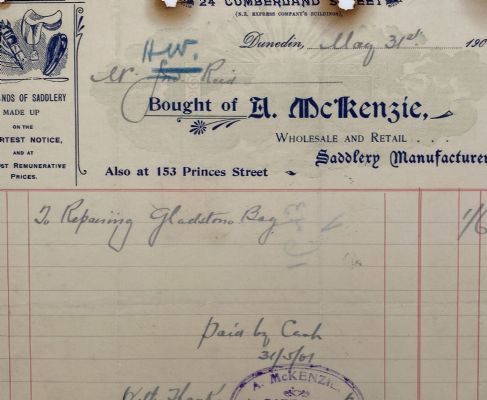 24 CUMBERLAND STREET
(N.Z. EXPRESS COMPANY'S BUILDINGS)
Dunedin, May 31st 190
H.W.
Mr. Reid
NDS OF SADDLERY
MADE UP
ON THE
RTEST NOTICE,
AND AT
ST REMUNERATIVE
PRICES.
Bought of A. McKenzie,
WHOLESALE AND RETAIL . .
Saddlery Manufacturer
Also at 153 Princes Street
To Repairing Gladstone Bag 1/6
paid by Cash
31/5/01
With Thank
A. McKENZIE